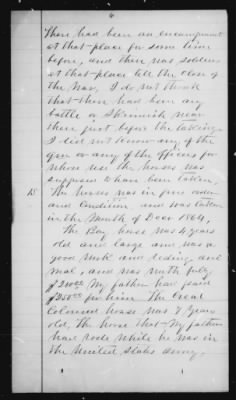 6
There had been an encampment
at that place for some time
before, and there was soldiers
at that place till the close of
the War, I do not think
that there had been any
battle or Skirmish near
there just before the taking.
I did not know any of the
gen or any of the officers for
whose use the horses was
supposed to have been taken.
18 The horses was in fine order
and Condition and was taken
in the Month of Decr 1864,
The Bay horse was 6 years
old and large and was a
good work and riding ani
mal, and was worth fully
$200.00 My father had paid
$250.00 for him. The Creal
Coloured horse was 8 years
old, The horse that My father
had rode while he was in
the United States Army.